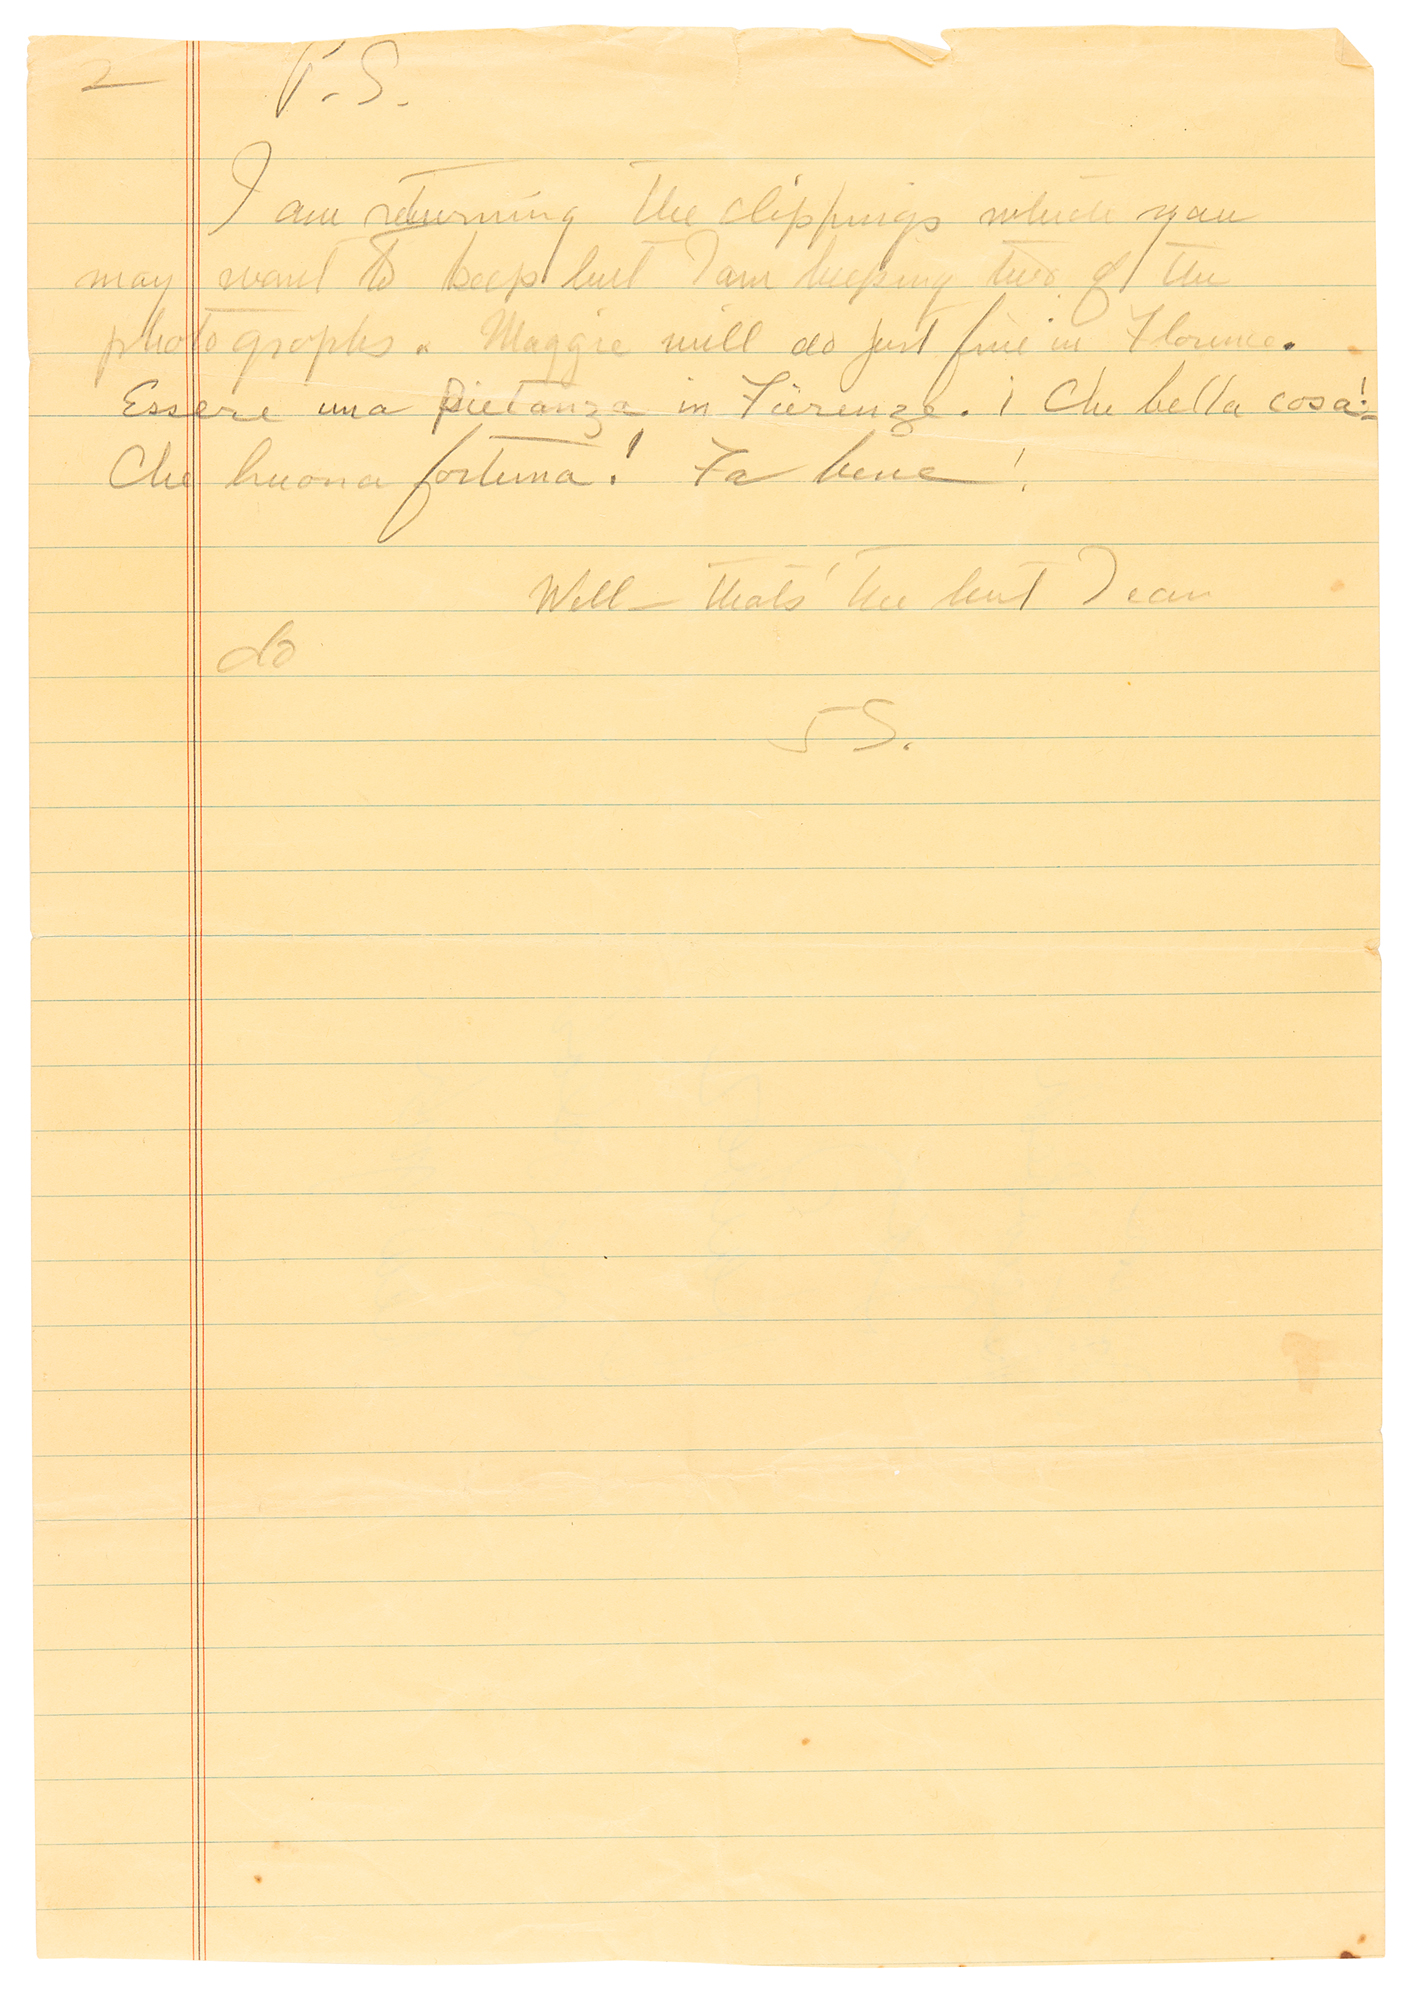 2 P.S.
I am returning the clippings which you
may want to keep but I am keeping two of the
photographs. Maggie will do just fine in Florence.
Essere una pietanza in Fierenze. ¡ Che bella cosa!
Che buona fortuna! Fa bene!
Well – thats' the best I can
do
JS.